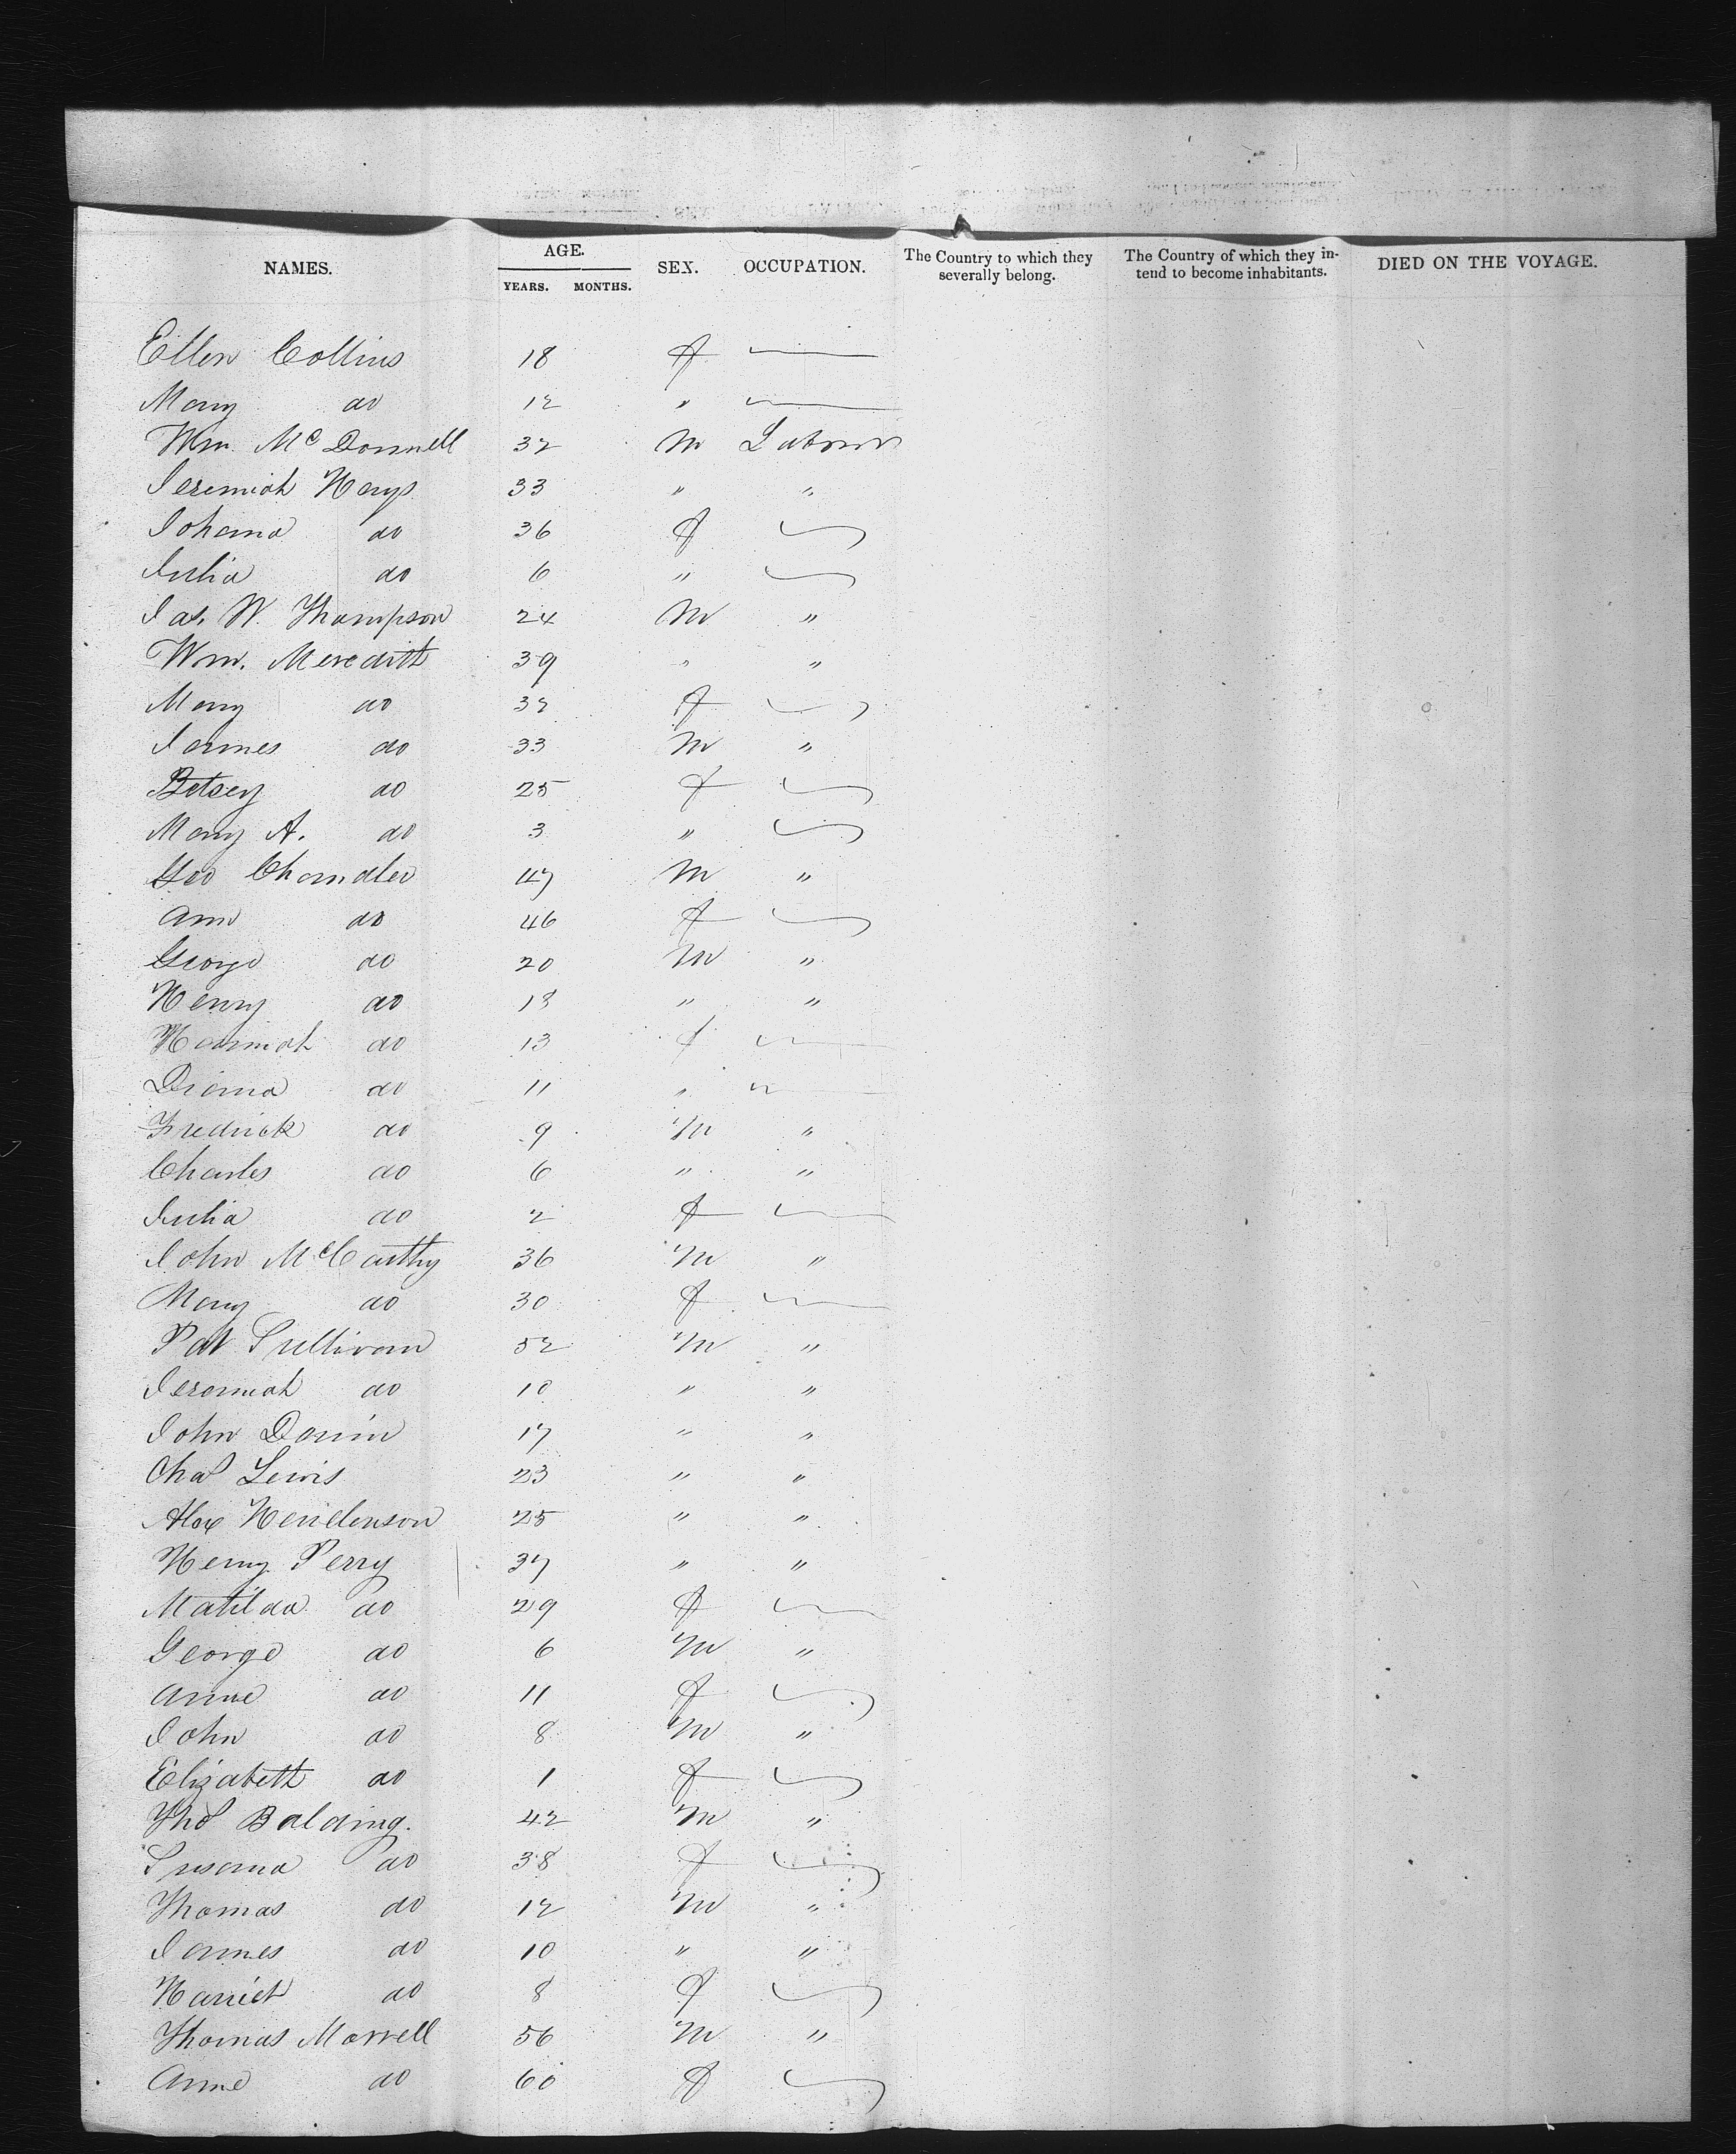 NAMES. AGE. SEX. OCCUPATION. The Country to which they severally belong. The Country of which they intend to become inhabitants. DIED ON THE VOYAGE.
YEARS. MONTHS.
Ellen Collins 18 f
Mary do 12 "
Wm. McDonnell 32 M Laborer
Jeremiah Hays 33 " "
Johana do 36 f
Julia do 6 "
Jas. W. Thompson 24 M "
Wm. Meredith 39 " "
Mary do 32 f
James do 33 M "
Betsey do 25 f
Mary A. do 3 "
Geo Chandler 47 M "
Ann do 46 f
George do 20 M "
Henry do 18 " "
do 13 f
Diana do 11 "
Fredrick do 9 M "
Charles do 6 " "
Julia do 2 f
John McCarthy 36 M "
Mary do 30 f
Pat Sullivan 52 M "
Jeremiah do 10 " "
John 17 " "
Chas Lewis 23 " "
Alex Henderson 25 " "
Henry Perry 37 " "
Matilda do 29 f
George do 6 M "
Anne do 11 f
John do 8 M "
Elizabeth do 1 f
Thos Balding. 42 M "
Susana do 38 f
Thomas do 12 M "
James do 10 " "
Harriet do 8 f
Thomas Morrell 56 M "
Anne do 60 f